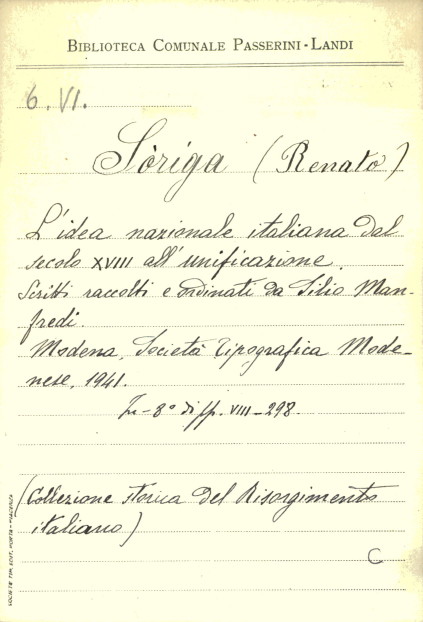 BIBLIOTECA COMUNALE PASSERINI-LANDI
6. VI.
Sòriga (Renato)
L'idea nazionale italiana dal
secolo XVIII all'unificazione.
Scritti raccolti e ordinati da Silio Man-
fredi.
Modena, Società Tipografica Mode-
nese, 1941.
In-8° di pp. VIII-298.
(Collezione storica del Risorgimento
italiano)
C